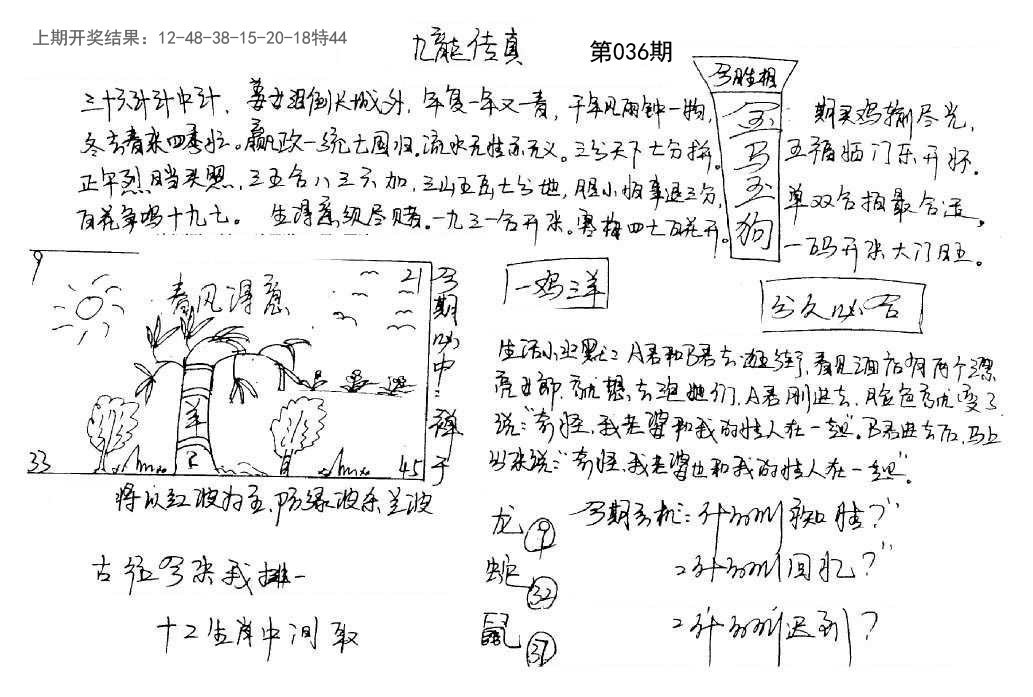 上期开奖结果：12-48-38-15-20-18特44
九龍传真
第036期
三十六计计中计，姜女泪倒长城外，年复一年又一青，千年风雨钟一物，
冬去春来四季忙。嬴政一统七国归。流水无情亦无义。三分天下七分拼。
正午烈日当头照，三五合八三六加，三山五岳七分地，胆小怕事退三分，
百花争鸣十九七。生得亲须尽赌。一九三一合开来。寒梅四七百花开。
今期
宝
马
玉
狗
期买鸡输尽光，
五福临门乐开怀。
单双合拍最合适，
一码开来大门旺。
9
21
春风得意
羊
33
45
今期必中：禅于
将以红波为主，防绿波杀兰波
一鸡三羊
分久必合
生活小 A君和B君去逛街，看见酒店有两个漂
亮女郎，就想去泡她们，A君刚进去，脸色就变了
说："奇怪，我老婆和我的情人在一起"。B君进去后，马上
出来说："奇怪，我老婆也和我的情人在一起"。
龙 9
蛇 32
鼠 37
今期玄机：什么叫
什么叫回忆？"
什么叫迟到？
古径 来我排一
十二生肖中间取